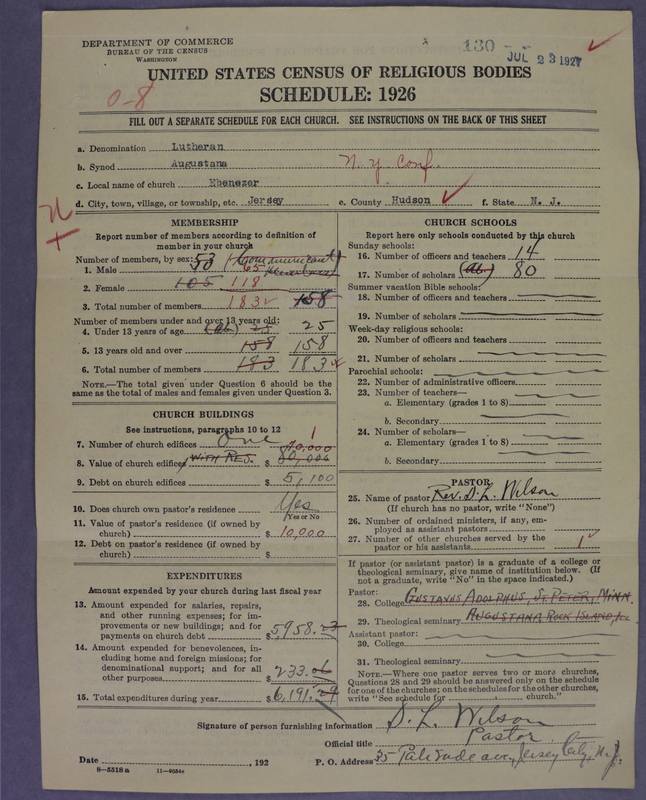 DEPARTMENT OF COMMERCE
BUREAU OF THE CENSUS
WASHINGTON
130
JUL 23 1927
UNITED STATES CENSUS OF RELIGIOUS BODIES
SCHEDULE: 1926
0-8
FILL OUT A SEPARATE SCHEDULE FOR EACH CHURCH. SEE INSTRUCTIONS ON THE BACK OF THIS SHEET
a. Denomination Lutheran
b. Synod Augustana N. Y Conf.
c. Local name of church Ebenezer
d. City, town, village, or township, etc. Jersey e. County Hudson f. State N. J.
MEMBERSHIP
Report number of members according to definition of
member in your church
Number of members, by sex: 53 (Communicant
1. Male 65
2. Female 105 118
3. Total number of members 183 158
Number of members under and over 13 years old:
4. Under 13 years of age (ab) 25 25
5. 13 years old and over 158 158
6. Total number of members 183 183
NOTE.—The total given under Question 6 should be the
same as the total of males and females given under Question 3.
CHURCH BUILDINGS
See instructions, paragraphs 10 to 12
7. Number of church edifices One 1
8. Value of church edifices WITH RES. $ 80,000 70,000
9. Debt on church edifices $ 5,100
10. Does church own pastor's residence? Yes
(Yes or No)
11. Value of pastor's residence (if owned by
church) $ 10,000
12. Debt on pastor's residence (if owned by
church) $
EXPENDITURES
Amount expended by your church during last fiscal year
13. Amount expended for salaries, repairs,
and other running expenses; for im-
provements or new buildings; and for
payments on church debt $ 5958.23
14. Amount expended for benevolences, in-
cluding home and foreign missions; for
denominational support; and for all
other purposes $ 233.06
15. Total expenditures during year $ 6,191.29
CHURCH SCHOOLS
Report here only schools conducted by this church
Sunday schools:
16. Number of officers and teachers 14
17. Number of scholars (ab.) 80
Summer vacation Bible schools:
18. Number of officers and teachers
19. Number of scholars
Week-day religious schools:
20. Number of officers and teachers
21. Number of scholars
Parochial schools:
22. Number of administrative officers
23. Number of teachers—
a. Elementary (grades 1 to 8)
b. Secondary
24. Number of scholars—
a. Elementary (grades 1 to 8)
b. Secondary
PASTOR
25. Name of pastor Rev. D. L. Wilson
(If church has no pastor, write "None")
26. Number of ordained ministers, if any, em-
ployed as assistant pastors
27. Number of other churches served by the
pastor or his assistants 1
If pastor (or assistant pastor) is a graduate of a college or
theological seminary, give name of institution below. (If
not a graduate, write "No" in the space indicated.)
Pastor:
28. College GUSTAVUS ADOLPHUS, ST. PETER, MINN.
29. Theological seminary AUGUSTANA ROCK ISLAND, ILL.
Assistant pastor:
30. College
31. Theological seminary
NOTE.—Where one pastor serves two or more churches,
Questions 28 and 29 should be answered only on the schedule
for one of the churches; on the schedules for the other churches,
write "See schedule for church."
Signature of person furnishing information D. L. Wilson
Official title Pastor
Date , 192 P. O. Address 35 Palisade ave, Jersey City, N. J.
8-5518 a 11-9684